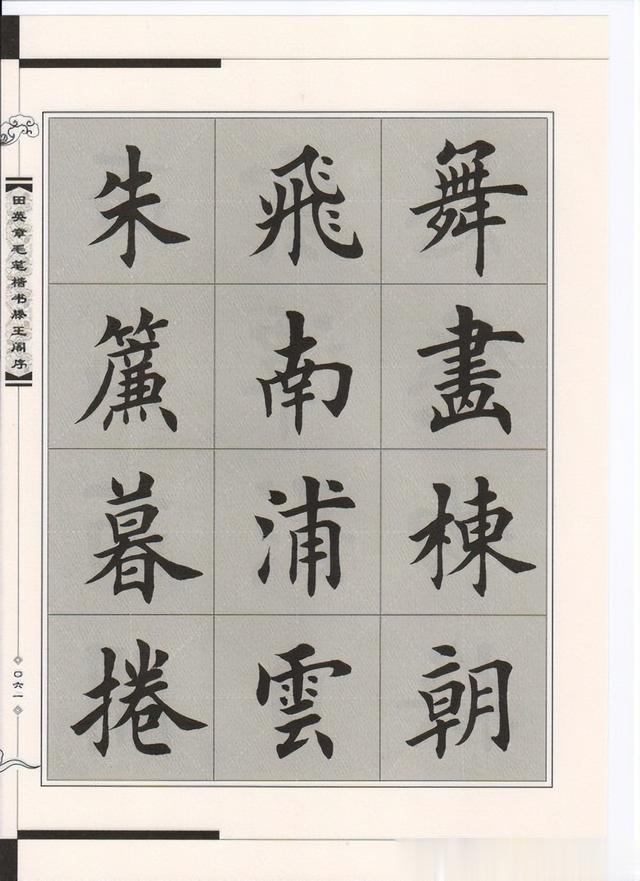 舞畫棟朝
飛南浦雲
朱簾暮捲
田英章毛笔楷书滕王阁序
〇六一